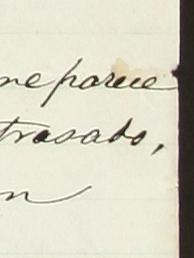 me parece
trasado,
n